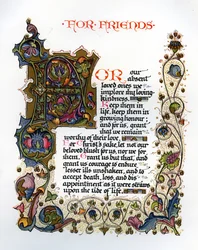 FOR FRIENDS
FOR our
absent
loved ones we
implore thy loving-
kindness.
Keep them in
life, keep them in
growing honour;
and for us, grant
that we remain
worthy of their love.
For Christ's sake, let not our
beloved blush for us, nor we for
them. Grant us but that, and
grant us courage to endure
lesser ills unshaken, and to
accept death, loss, and dis-
appointment as it were straws
upon the tide of life.